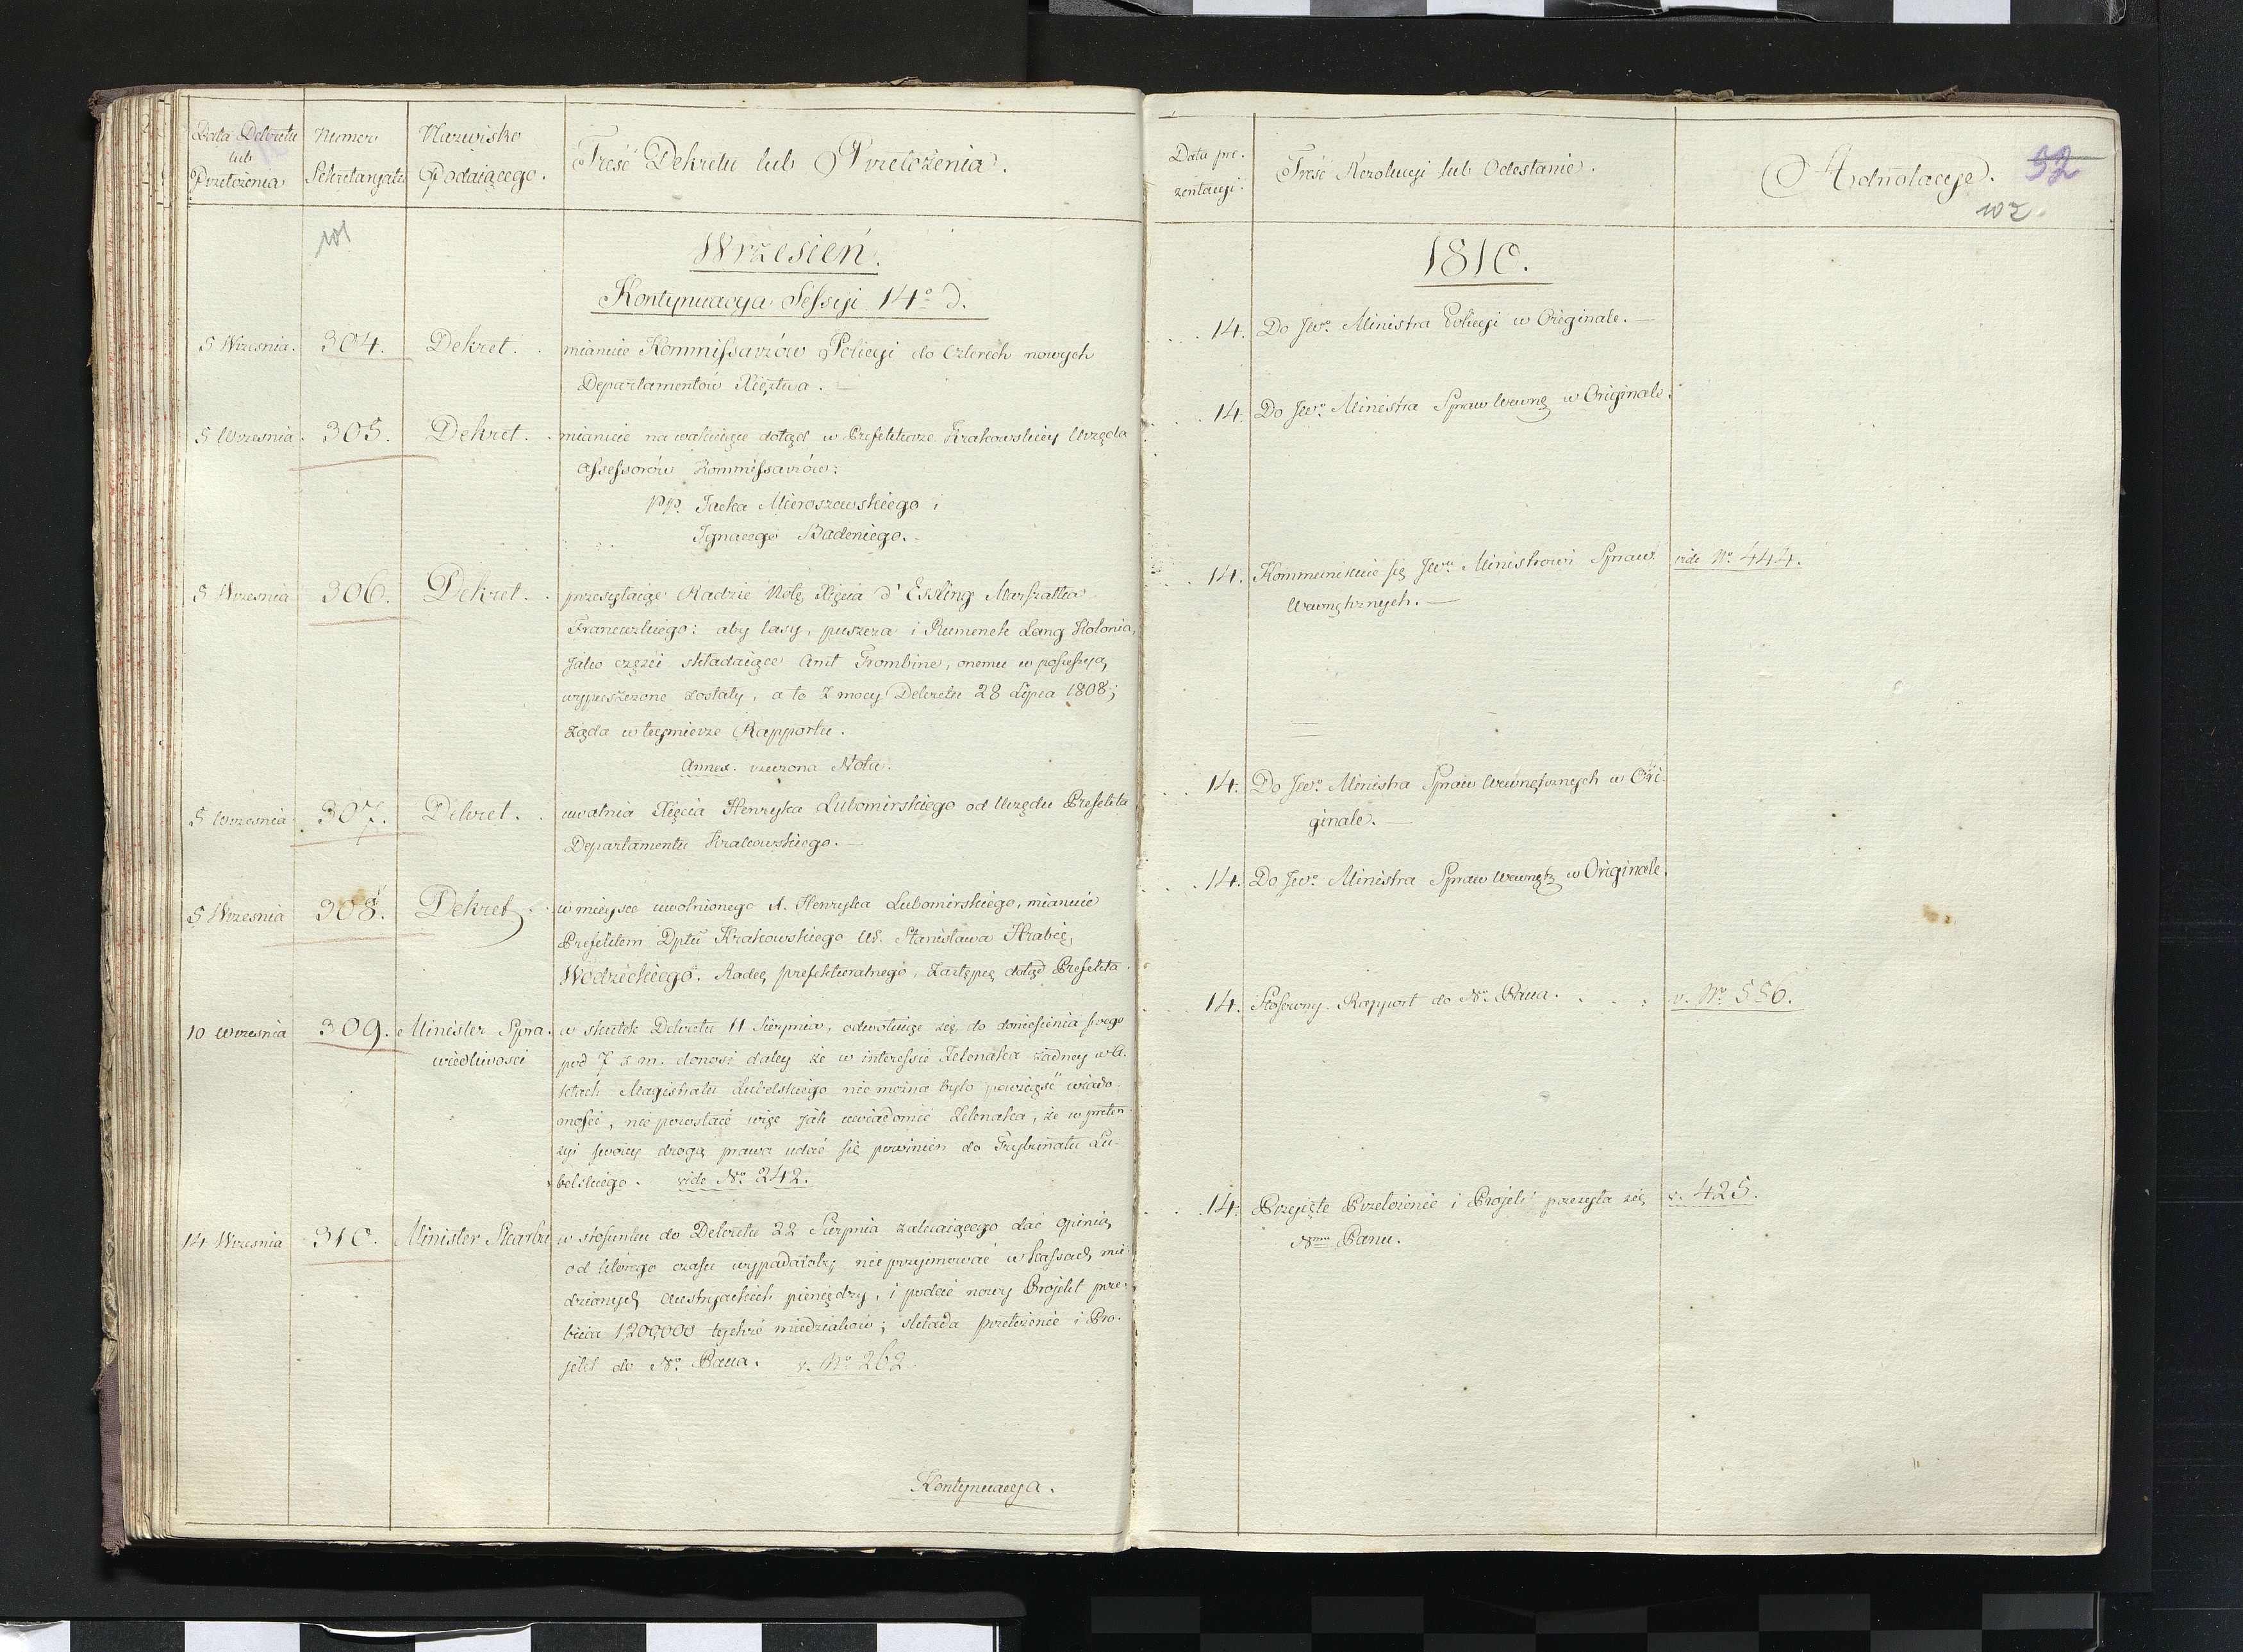 Data Dekretu
lub
Przełożenia
Numer
Sekretaryatu
Nazwisko
Podaiącego.
Treść Dekretu lub Przełożenia.
101
Wrzesień.
Kontynuacya Sessyi 14º d.
5 Wrzesnia. 304. Dekret. mianuie Kommissarzów Policyi do czterech nowych
Departamentów Xięztwa.
5 Wrzesnia. 305. Dekret. mianuie na wakuiące dotąd w Prefekturze Krakowskiey Urzęda
Assessorów Kommissarzów:
PP. Jacka Mieroszewskiego i
Ignacego Badeniego.
5 Wrzesnia 306. Dekret. przesyłaiąc Radzie Notę Xięcia d'Essling Marszałka
Francuzkiego: aby lasy, puszcza i Rumenek Lang Kolonia,
jako części składaiące Amt Trombine, onemu w possessyą
wypuszczone zostały, a to z mocy Dekretu 28 Lipca 1808;
żąda w tey mierze Rapportu.
Annex. rzeczona Nota.
5 Wrzesnia 307. Dekret. uwalnia Xięcia Henryka Lubomirskiego od Urzędu Prefekta
Departamentu Krakowskiego.
5 Wrzesnia 308. Dekret w mieysce uwolnionego X. Henryka Lubomirskiego, mianuie
Prefektem Dptu Krakowskiego W. Stanisława Hrabię
Wodzickiego. Radcę prefekturalnego, Zastępcę dotąd Prefekta.
10 Wrzesnia 309. Minister Spra- w skutek Dekretu 11 Sierpnia, odwołuiąc się do doniesienia swego
wiedliwosci pod 7 s. m. donosi daley że w interessie Zelenaka żadney w A-
ktach Magistratu Lubelskiego nie można było powziąść wiado-
mość, nie pozostaie więc jak uwiadomić Zelenaka, że w preten-
syi swoiey drogą prawa udać się powinien do Trybunału Lu-
belskiego. vide Nº 242.
14 Wrzesnia 310. Minister Skarbu w stosunku do Dekretu 22 Sierpnia zalecaiącego dać opinią
od którego czasu wypadałoby nieprzyimować w kassach mie-
dzianych austryackich pieniędzy, i podać nowy Projekt prze-
bicia 1,200,000 tychże miedziaków; składa przełożenie i Pro-
jekt do Nº Pana. v. Nº 262
Kontynuacya.
Data pre-
zentacyi.
Treść Rezolucyi lub Odesłanie.
Adnotacye.
92
102.
1810.
14. Do JWº Ministra Policyi w Originale.
14. Do JWº Ministra Spraw Wewnę w Originale.
14. Kommunikuie się JWu Ministrowi Spraw vide Nº 444.
Wewnętrznych.
14. Do JWº Ministra Spraw Wewnętrznych w Ori-
ginale.
14. Do JWº Ministra Spraw Wewnętz w Originale.
14. Stosowny Rapport do Nº Pana. v. Nº 556.
14. Przyięte Przełożenie i Projekt przesyła się v. 425.
Nmu Panu.